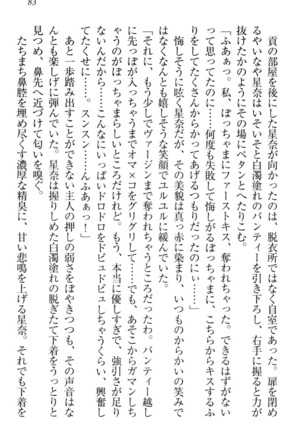 83
貢の部屋を後にした星奈が向かったのは、脱衣所ではなく自室であった。扉を閉めるやいなや星奈はいそいそと白濁塗れのパンティーを引き下ろし、右手に握ると力が抜けたかのようにその場にペタンとへたりこむ。
「ふあぁっ。私、ぼっちゃまにファーストキス、奪われちゃった。できるはずがないって思ってたのに……。何度も失敗して悔しがるぼっちゃまに、こちらからキスするふりをしてたっぷりからかってあげるつもりだったのにぃ……」
悔しそうに呟く星奈だが、その美貌は真っ赤に染まり、いつものからかいの笑みではなくあまりにも嬉しそうな笑顔でユルユルに緩んでいた。
「それに、もう少しでヴァージンまで奪われちゃうところだったわ。パンティー越しに先っぽが入っちゃうまでオマ×コをグリグリして……でも、あそこからガマンしちゃうのがぼっちゃまらしいところだけれど。もう、本当に優しすぎで、強引さが足りないんだから。だけど、こんなにいっぱいドロドロをドピュドピュしちゃうくらい、興奮してたくせに……。スンスン……んふあぁっ」
あと一歩踏み出すことができない主人の押しの弱さをぼやきつつも、その声音はなんとも楽しげに弾んでいた。星奈は握りしめた白濁塗れの脱ぎたて下着をうっとりと見つめ、鼻先へ近づけて匂いを嗅ぐ。
たちまち鼻腔を埋め尽くす濃厚な精臭に、甘い悲鳴を上げる星奈。だが下着をよう